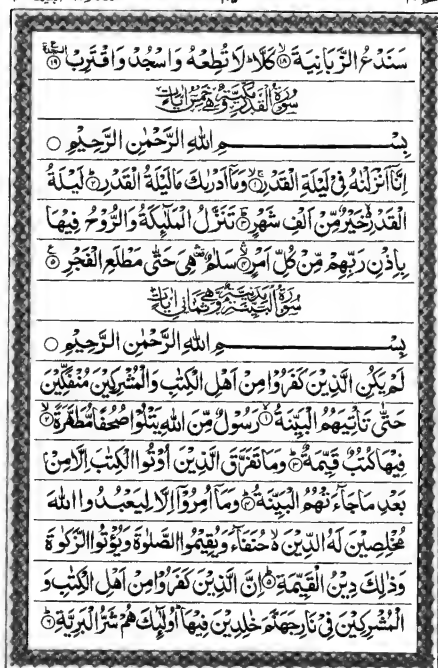 سَنَدْعُ الزَّبَانِيَةَ ۙ﴿۱۸﴾ كَلَّا ؕ لَا تُطِعْهُ وَاسْجُدْ وَاقْتَرِبْ ﴿۱۹﴾
سُوْرَةُ الْقَدْرِ مَكِّيَّةٌ وَّهِيَ خَمْسُ اٰيَاتٍ
بِسْمِ اللهِ الرَّحْمٰنِ الرَّحِيْمِ ○
اِنَّاۤ اَنْزَلْنٰهُ فِيْ لَيْلَةِ الْقَدْرِ ۚۖ﴿۱﴾ وَمَاۤ اَدْرٰىكَ مَا لَيْلَةُ الْقَدْرِ ؕ﴿۲﴾ لَيْلَةُ
الْقَدْرِ ۙ خَيْرٌ مِّنْ اَلْفِ شَهْرٍ ؕ﴿۳﴾ تَنَزَّلُ الْمَلٰٓئِكَةُ وَالرُّوْحُ فِيْهَا
بِاِذْنِ رَبِّهِمْ مِّنْ كُلِّ اَمْرٍ ۙ﴿۴﴾ سَلٰمٌ ۛ هِيَ حَتّٰى مَطْلَعِ الْفَجْرِ ﴿۵﴾
سُوْرَةُ الْبَيِّنَةِ مَدَنِيَّةٌ وَّهِيَ ثَمَانِيْ اٰيَاتٍ
بِسْمِ اللهِ الرَّحْمٰنِ الرَّحِيْمِ ○
لَمْ يَكُنِ الَّذِيْنَ كَفَرُوْا مِنْ اَهْلِ الْكِتٰبِ وَالْمُشْرِكِيْنَ مُنْفَكِّيْنَ
حَتّٰى تَاْتِيَهُمُ الْبَيِّنَةُ ۙ﴿۱﴾ رَسُوْلٌ مِّنَ اللهِ يَتْلُوْا صُحُفًا مُّطَهَّرَةً ۙ﴿۲﴾
فِيْهَا كُتُبٌ قَيِّمَةٌ ؕ﴿۳﴾ وَمَا تَفَرَّقَ الَّذِيْنَ اُوْتُوا الْكِتٰبَ اِلَّا مِنْۢ
بَعْدِ مَا جَآءَتْهُمُ الْبَيِّنَةُ ؕ﴿۴﴾ وَمَاۤ اُمِرُوْۤا اِلَّا لِيَعْبُدُوا اللهَ
مُخْلِصِيْنَ لَهُ الدِّيْنَ ۙ۬ حُنَفَآءَ وَيُقِيْمُوا الصَّلٰوةَ وَيُؤْتُوا الزَّكٰوةَ
وَذٰلِكَ دِيْنُ الْقَيِّمَةِ ؕ﴿۵﴾ اِنَّ الَّذِيْنَ كَفَرُوْا مِنْ اَهْلِ الْكِتٰبِ وَ
الْمُشْرِكِيْنَ فِيْ نَارِ جَهَنَّمَ خٰلِدِيْنَ فِيْهَا ؕ اُولٰٓئِكَ هُمْ شَرُّ الْبَرِيَّةِ ؕ﴿۶﴾